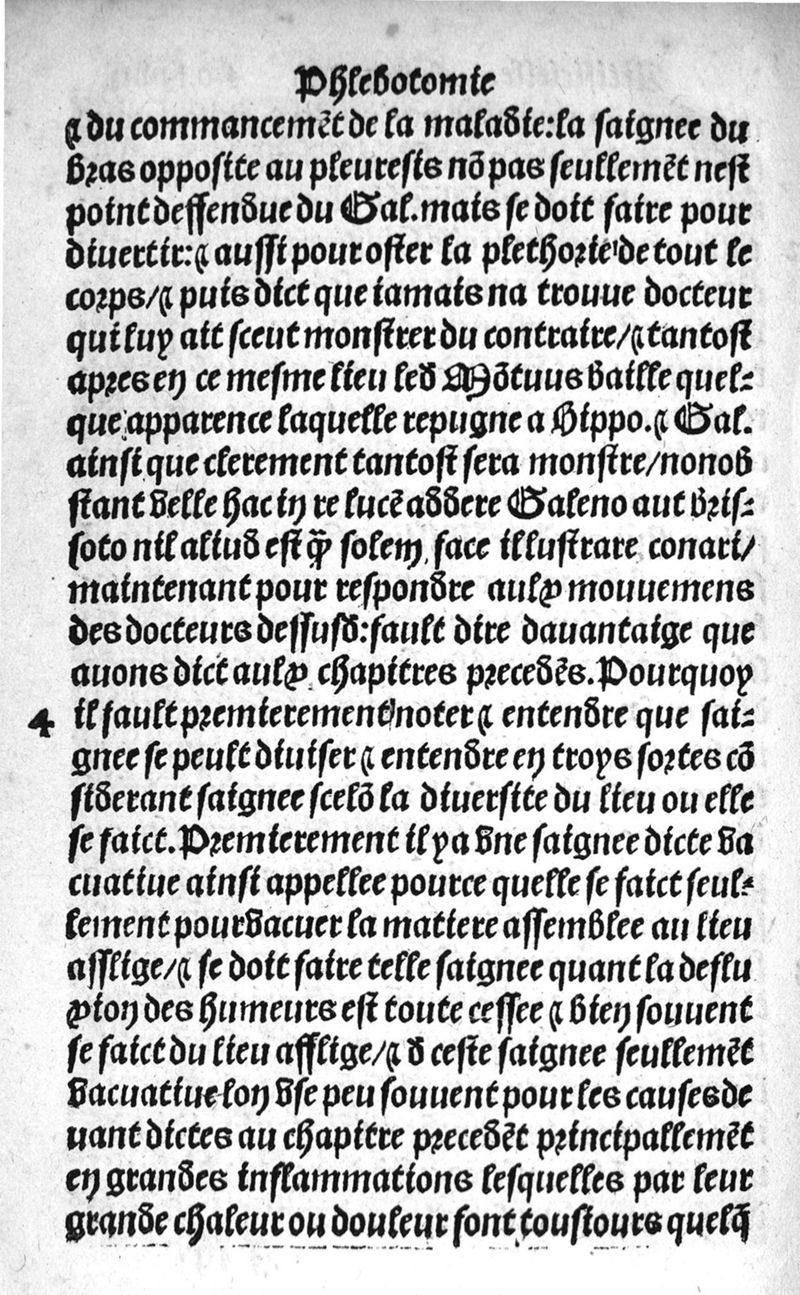 Phlebotomie
⁊ du commancemẽt de la maladie:la saignee du
bras opposite au pleuresis nõ pas seullemẽt nest
point deffendue du Gal.mais se doit faire pour
diuertir:⁊ aussi pour oster la plethorie de tout le
corps/⁊ puis dict que iamais na trouue docteur
qui luy ait sceut monstrer du contraire/⁊ tantost
apres en ce mesme lieu led Mõtuus baille quel-
que apparence laquelle repugne a Hippo.⁊ Gal.
ainsi que clerement tantost sera monstre/nonob
stant velle hac in re lucẽ addere Galeno aut Bris-
soto nil aliud est q̃ȝ solem face illustrare conari/
maintenant pour respondre aulx mouuemens
des docteurs dessusd:fault dire dauantaige que
auons dict aulx chapitres precedẽs.Pourquoy
4 il fault premierement noter ⁊ entendre que sai-
gnee se peult diuiser ⁊ entendre en troys sortes cõ
siderant saignee scelõ la diuersite du lieu ou elle
se faict.Premierement il ya vne saignee dicte va
cuatiue ainsi appellee pource quelle se faict seul-
lement pour vacuer la matiere assemblee au lieu
afflige/⁊ se doit faire telle saignee quant la deflu
xion des humeurs est toute cessee ⁊ bien souuent
se faict du lieu afflige/⁊ d ceste saignee seullemẽt
vacuatiue lon vse peu souuent pour les causes de
uant dictes au chapitre precedẽt principallemẽt
en grandes inflammations lesquelles par leur
grande chaleur ou douleur font tousiours quelq̃